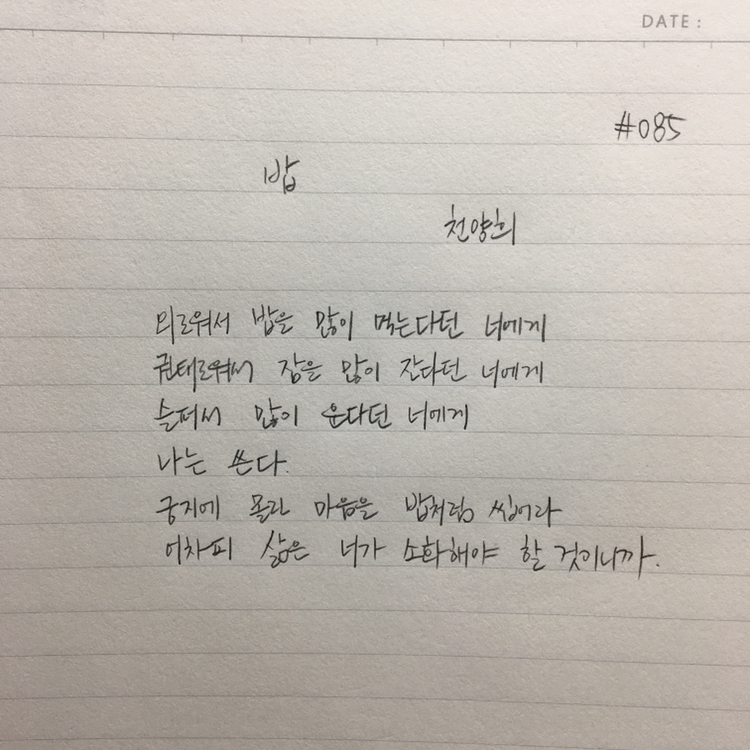 DATE :
#085
밥
천양희
외로워서 밥을 많이 먹는다던 너에게
권태로워서 잠을 많이 잔다던 너에게
슬퍼서 많이 운다던 너에게
나는 쓴다.
궁지에 몰린 마음을 밥처럼 씹어라
어차피 삶은 너가 소화해야 할 것이니까.